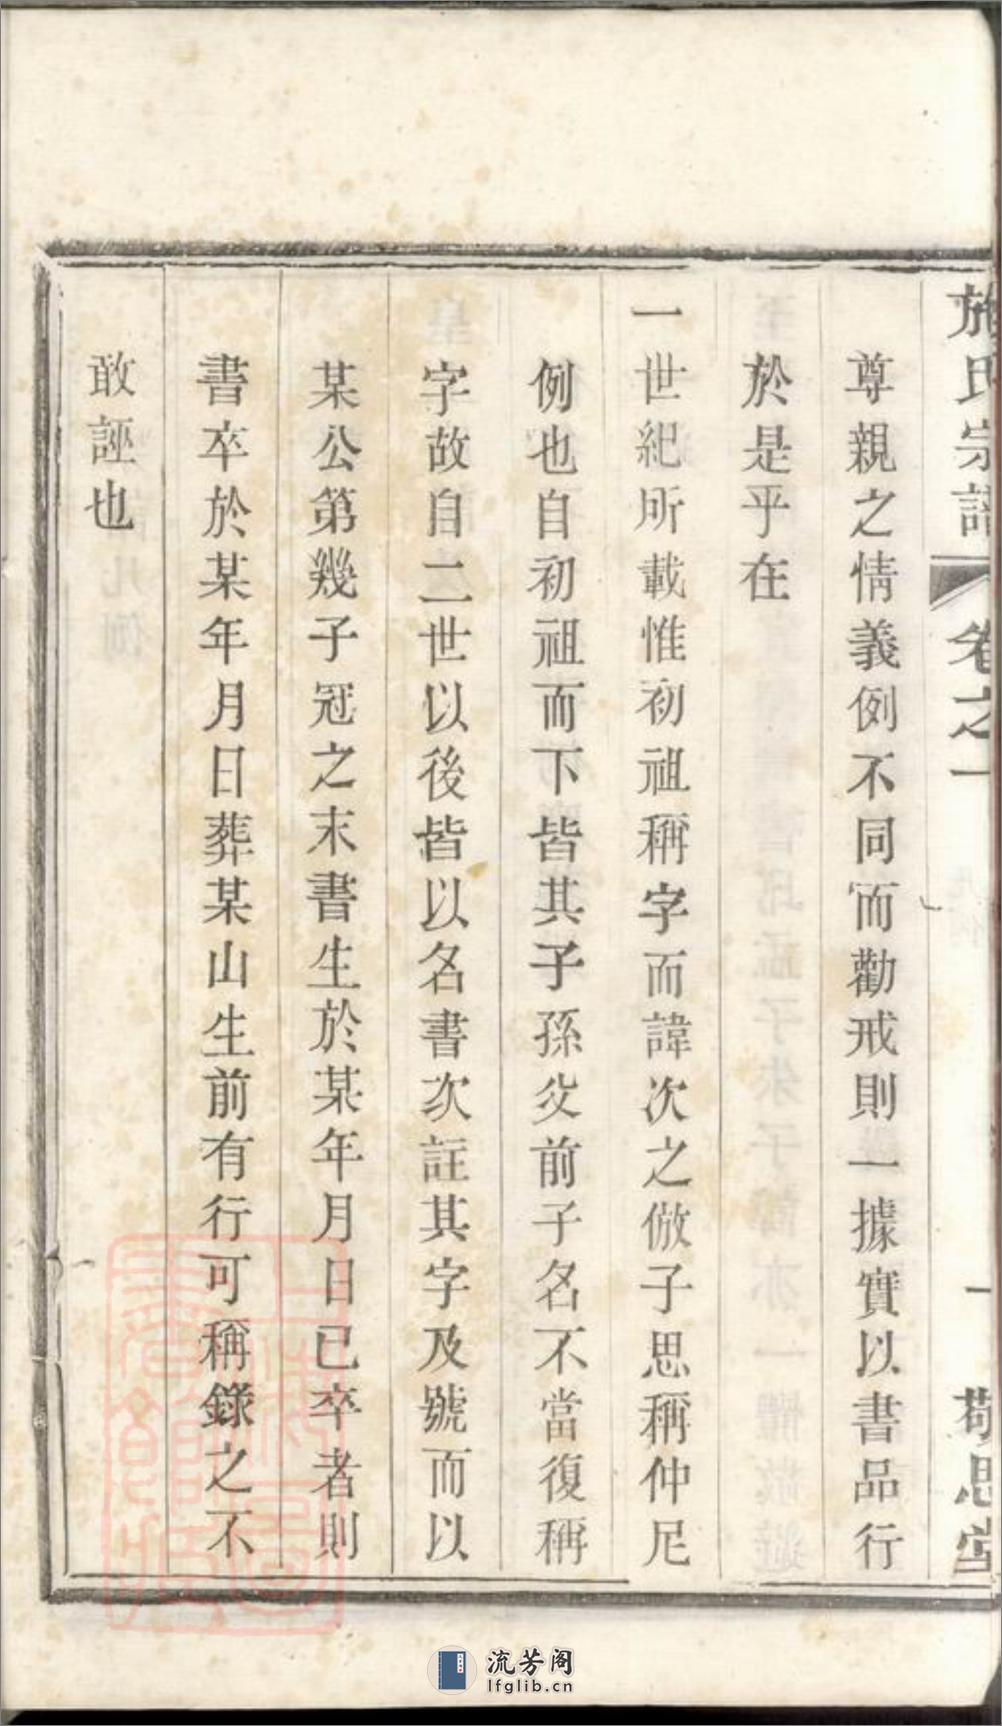 施氏宗譜
卷之一
一
敬思堂
尊親之情義例不同而勸戒則一據實以書品行
於是乎在
一世紀所載惟初祖稱字而諱次之倣子思稱仲尼
例也自初祖而下皆其子孫父前子名不當復稱
字故自二世以後皆以名書次註其字及號而以
某公第幾子冠之末書生於某年月日已卒者則
書卒於某年月日葬某山生前有行可稱錄之不
敢誣也
流芳阁
lfglib.cn